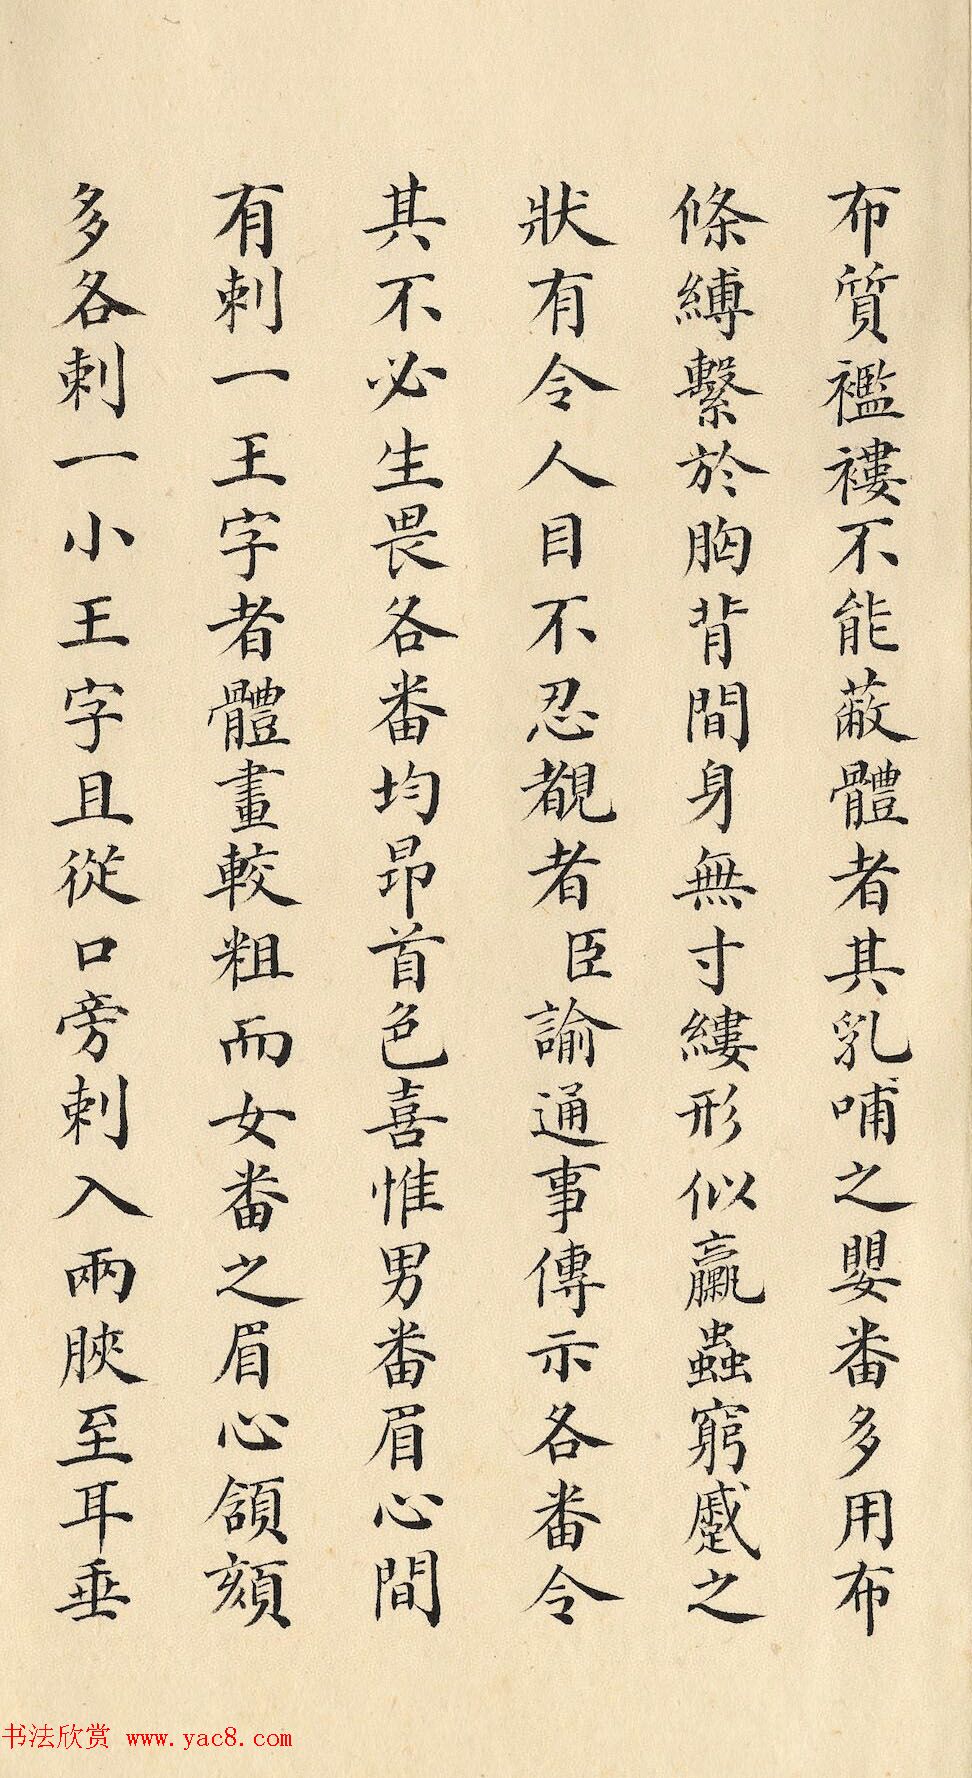 布質襤褸不能蔽體者其乳哺之嬰番多用布
條縛繫於胸背間身無寸縷形似臝蟲窮蹙之
狀有令人目不忍覩者臣諭通事傳示各番令
其不必生畏各番均昂首色喜惟男番眉心間
有刺一王字者體畫較粗而女番之眉心頷頦
多各刺一小王字且從口旁刺入兩脥至耳垂
书法欣赏 www.yac8.com